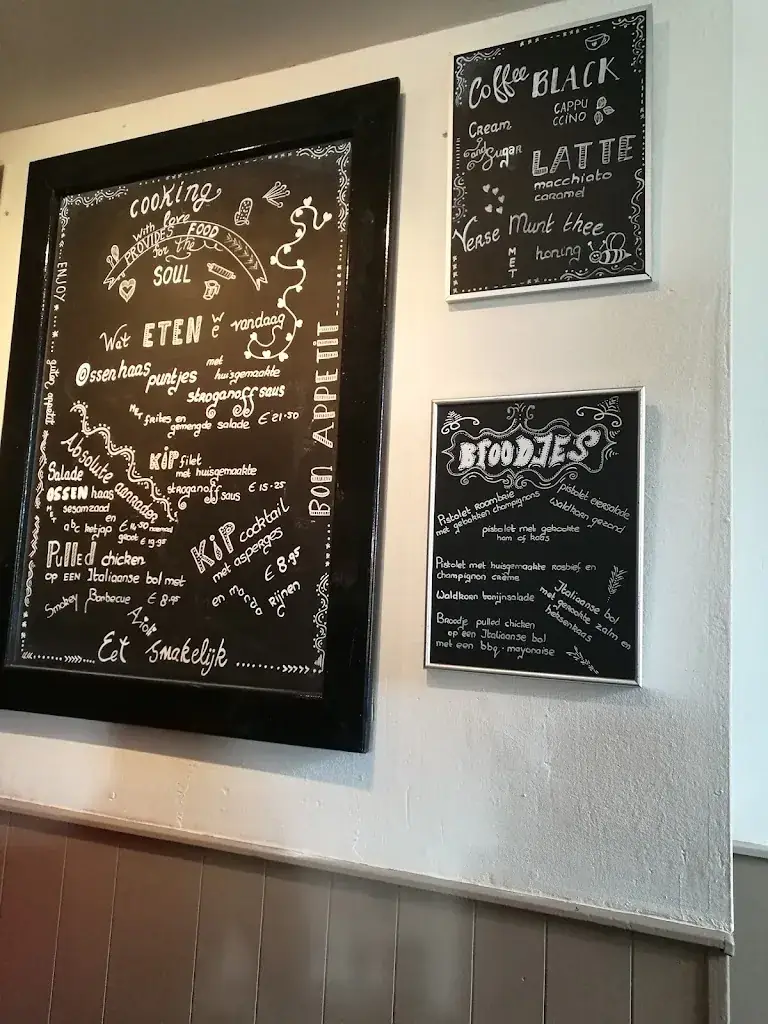 cooking
with love
PROVIDES FOOD
for the
SOUL
ENJOY
guten appetit
BON APPETIT
Wat ETEN we vandaag
Ossenhaas puntjes met
huisgemaakte
stroganoff saus
Met frites en
gemengde salade € 21.50
Absolute aanrader
KIP filet
met huisgemaakte
stroganoff saus € 15.25
Salade
OSSENhaas
Met sesamzaad
en
abc ketjap € 14.50 normaal
groot € 19.95
KIP cocktail
met asperges
€ 8.95
en mango
Rijnen
Pulled chicken
op EEN Italiaanse bol met
Smokey Barbecue € 8.95
Eet smakelijk
Coffee BLACK
CAPPU
CCINO
Cream
and Sugar
LATTE
macchiato
caramel
Verse Munt thee
MET
honing
BROODJES
Pistolet roombrie
met gebakken champignons
pistolet eiersalade
Waldkorn gezond
pistolet met gekookte
ham of kaas
Pistolet met huisgemaakte rosbief en
champignon crème
Waldkorn tonijnsalade
Italiaanse bol
met gerookte zalm en
Broodje pulled chicken
op een Italiaanse bol
met een bbq-mayonaise